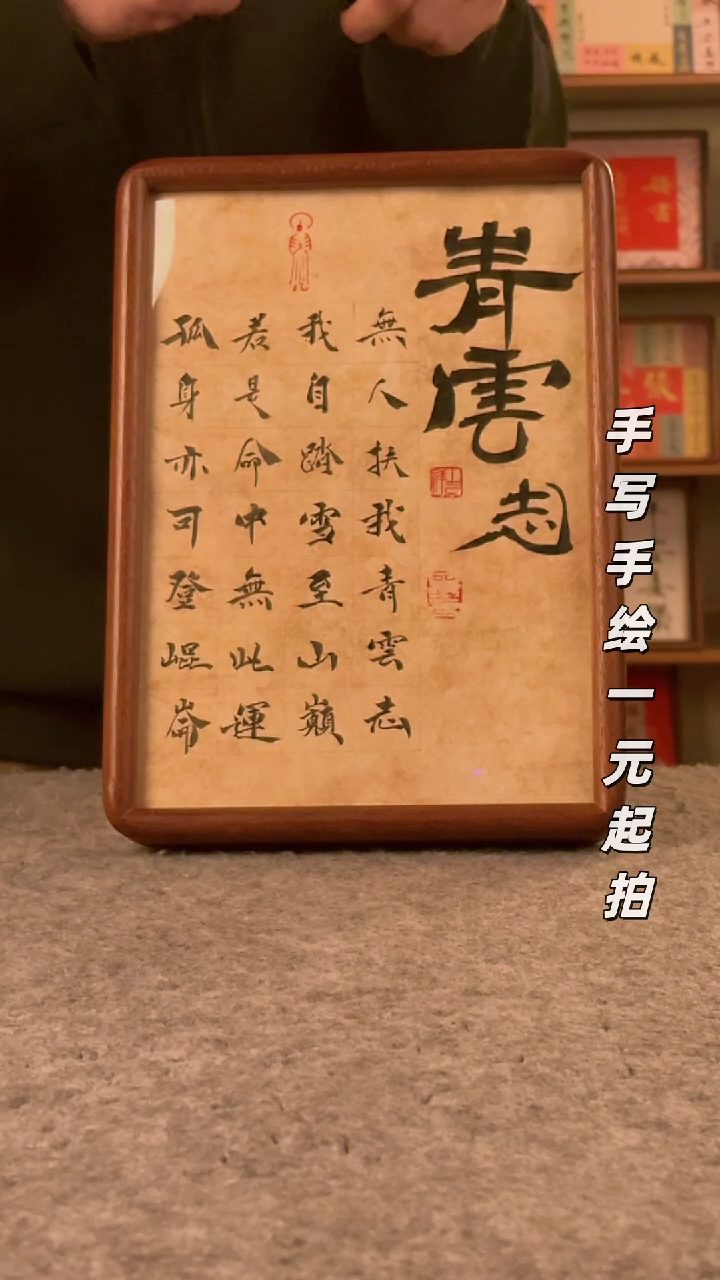 青雲志
無人扶我青雲志
我自踏雪至山巔
若是命中無此運
孤身亦可登崐崙
手写手绘一元起拍